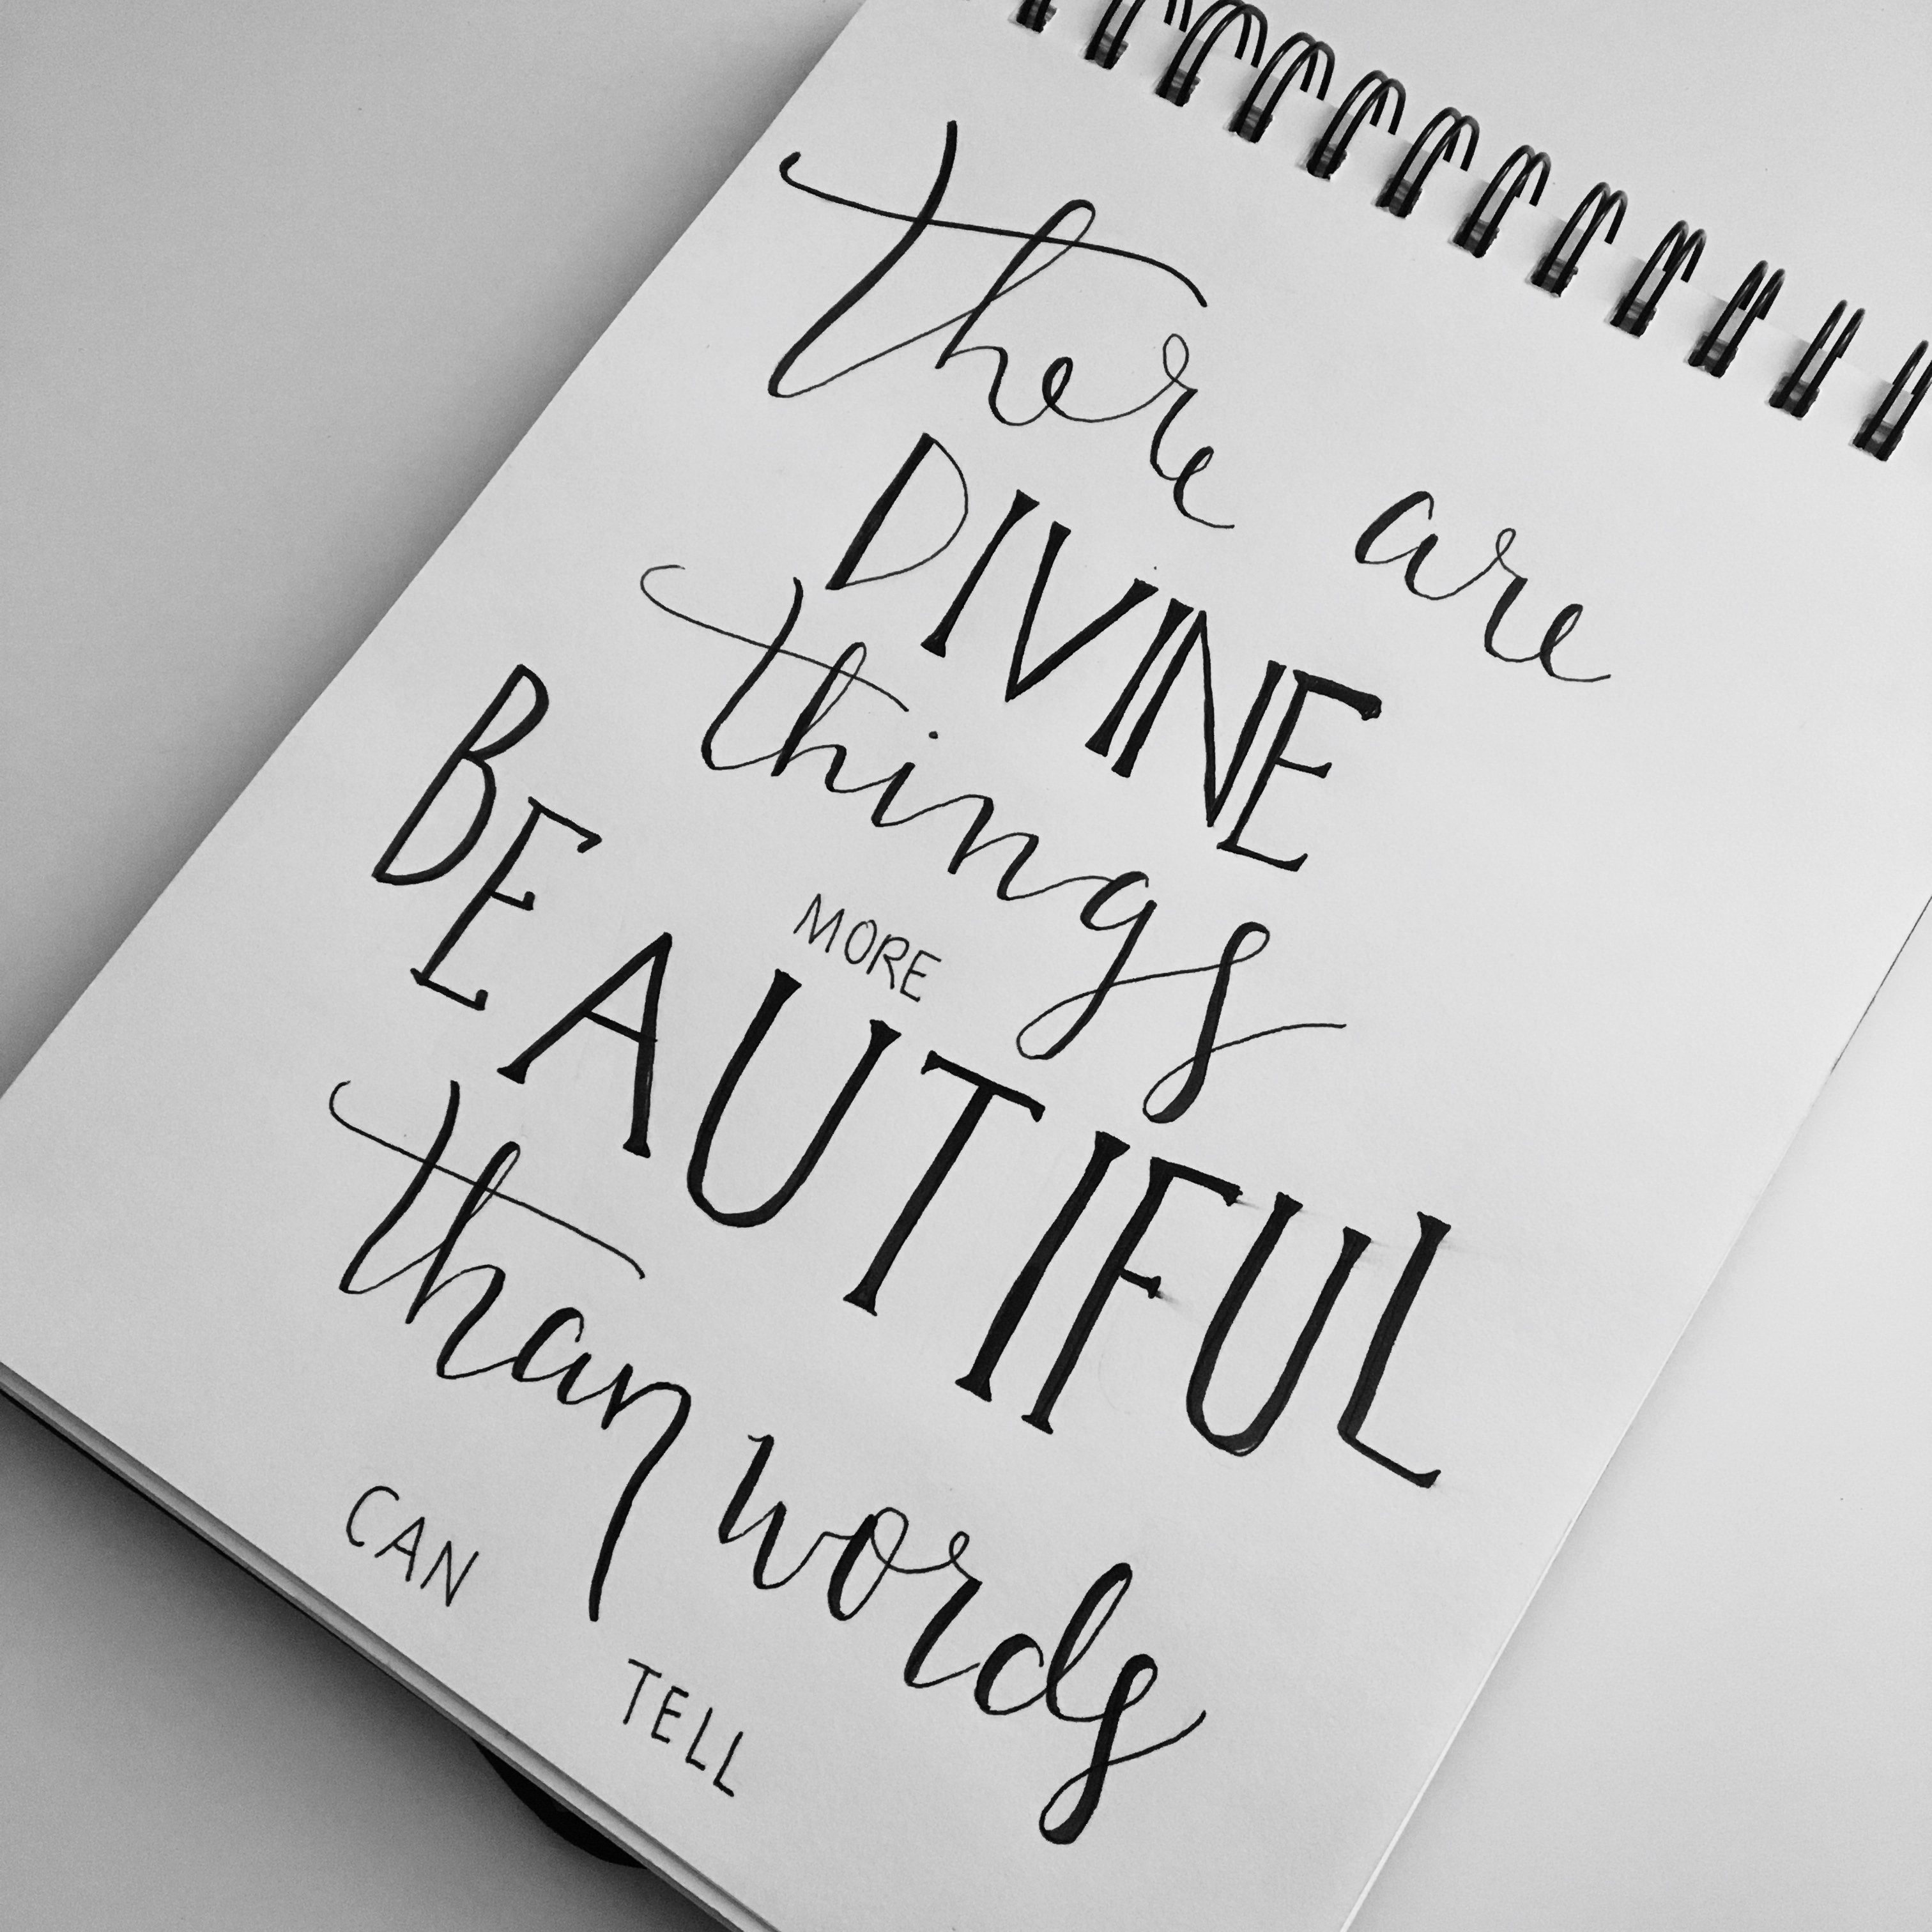 there are
DIVINE
things
MORE
BEAUTIFUL
than words
CAN TELL